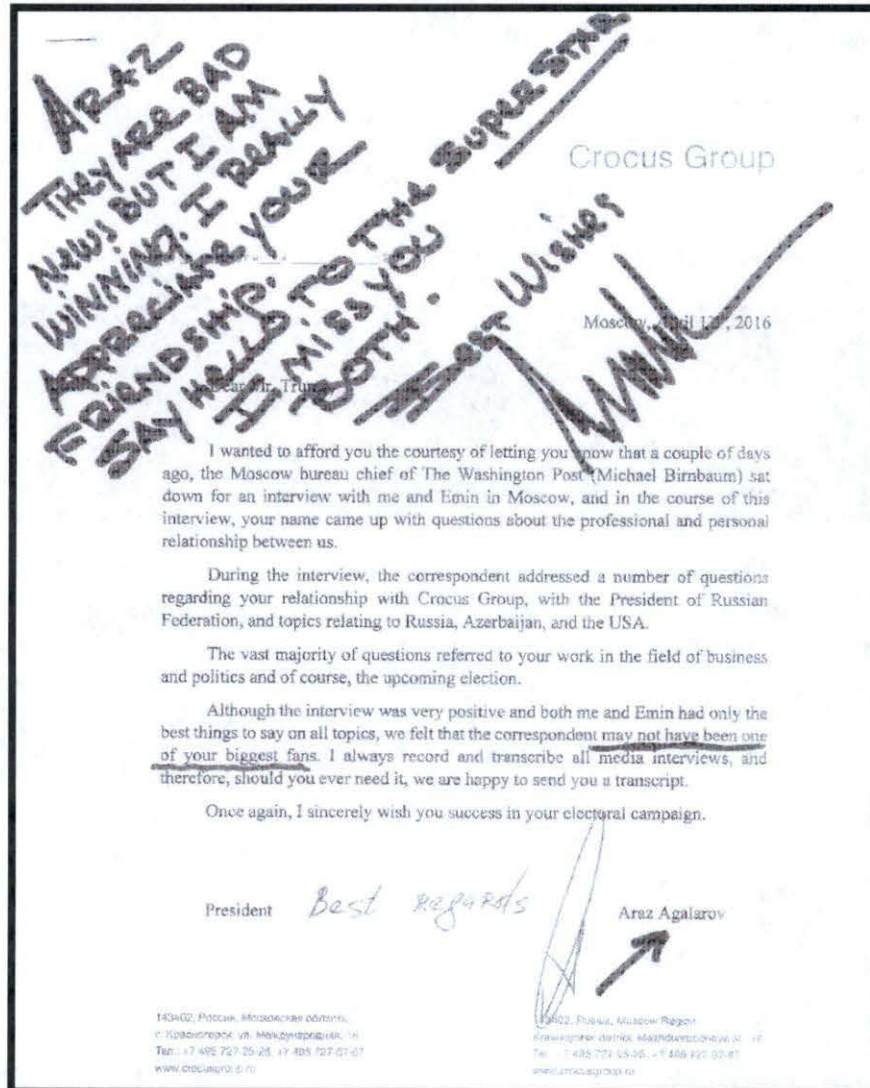 ARAZ
THEY ARE BAD
NEWS BUT I AM
WINNING. I REALLY
APPRECIATE YOUR
FRIENDSHIP.
SAY HELLO TO THE SUPER STAR
I MISS YOU
BOTH.
BEST WISHES
Crocus Group
Moscow, April 2016
Dear Mr. Trump
I wanted to afford you the courtesy of letting you know that a couple of days
ago, the Moscow bureau chief of The Washington Post (Michael Birnbaum) sat
down for an interview with me and Emin in Moscow, and in the course of this
interview, your name came up with questions about the professional and personal
relationship between us.
During the interview, the correspondent addressed a number of questions
regarding your relationship with Crocus Group, with the President of Russian
Federation, and topics relating to Russia, Azerbaijan, and the USA.
The vast majority of questions referred to your work in the field of business
and politics and of course, the upcoming election.
Although the interview was very positive and both me and Emin had only the
best things to say on all topics, we felt that the correspondent may not have been one
of your biggest fans. I always record and transcribe all media interviews, and
therefore, should you ever need it, we are happy to send you a transcript.
Once again, I sincerely wish you success in your electoral campaign.
President Best Regards Araz Agalarov
143402, Россия, Московская область,
г. Красногорск, ул. Международная,
Тел.: +7 495 727-25-26, +7 495 727-
143402, Russia, Moscow Region
www.crocusgroup.ru